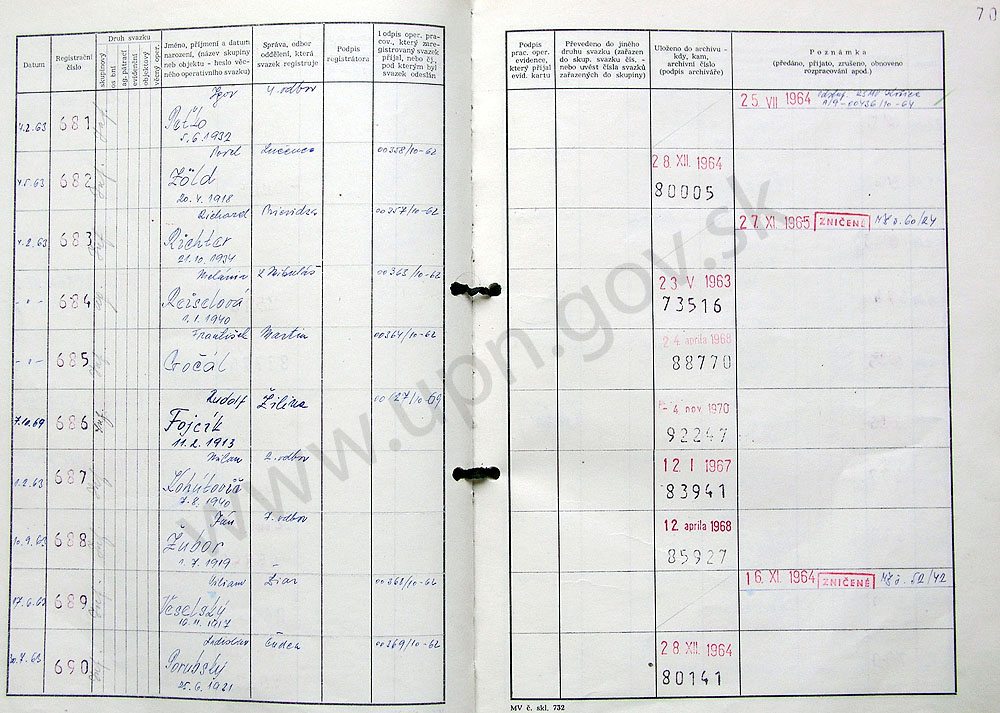 70
Datum
Registrační číslo
Druh svazku
skupinový
osobní
ag. pátrací
evidenční
objektový
vč. oper.
Jméno, příjmení a datum
narození, (název skupiny
neb objektu - heslo vče-
ného operativního svazku)
Správa, odbor
oddělení, která
svazek registruje
Podpis
registrátora
Podpis oper. pracov., který zaregistrovaný svazek
přijal, nebo čj.,
pod kterým byl
svazek odeslán
Podpis
prac. oper.
evidence,
který přijal
evid. kartu
Převedeno do jiného
druhu svazku (zařazen
do skup. svazku čís. -
nebo uvést čísla svazků
zařazených do skupiny)
Uloženo do archivu -
kdy, kam,
archivní číslo
(podpis archiváře)
Poznámka
(předáno, přijato, zrušeno, obnoveno
rozpracování apod.)
Igor 4. odbor
4.2.63 681
5.6.1932
25. VII 1964
A/9-00436/10-64
Pavel Lučenec 00358/10-62
4.5.63 682 Zöld
20.4.1918
28. XII. 1964
80005
Richard Prievidza 00357/10-62
4.2.63 683 Richter
21.10.1934
27. XI. 1965 ZNIČENÉ 60/24
Melánia L. Mikuláš 00363/10-62
- " - 684 Reiselová
1.1.1940
23. V 1963
73516
František Martin 00364/10-62
- " - 685 Gočál
24. aprila 1968
88770
Rudolf Žilina 00127/10-69
7.10.69 686 Fojcík
11.2.1913
- 4. nov. 1970
92247
Milan 2. odbor
1.2.63 687 Kohútovič
7.8.1940
12. I 1967
83941
Ján 7. odbor
10.9.63 688 Žubor
1.7.1919
12. aprila 1968
85927
Viliam Žiar 00368/10-62
17.6.63 689 Veselský
10.11.1917
16. XI. 1964 ZNIČENÉ 52/42
Ladislav Čadca 00369/10-62
30.4.63 690 Porubský
25.6.1921
28. XII. 1964
80141
MV č. skl. 732
www.upn.gov.sk